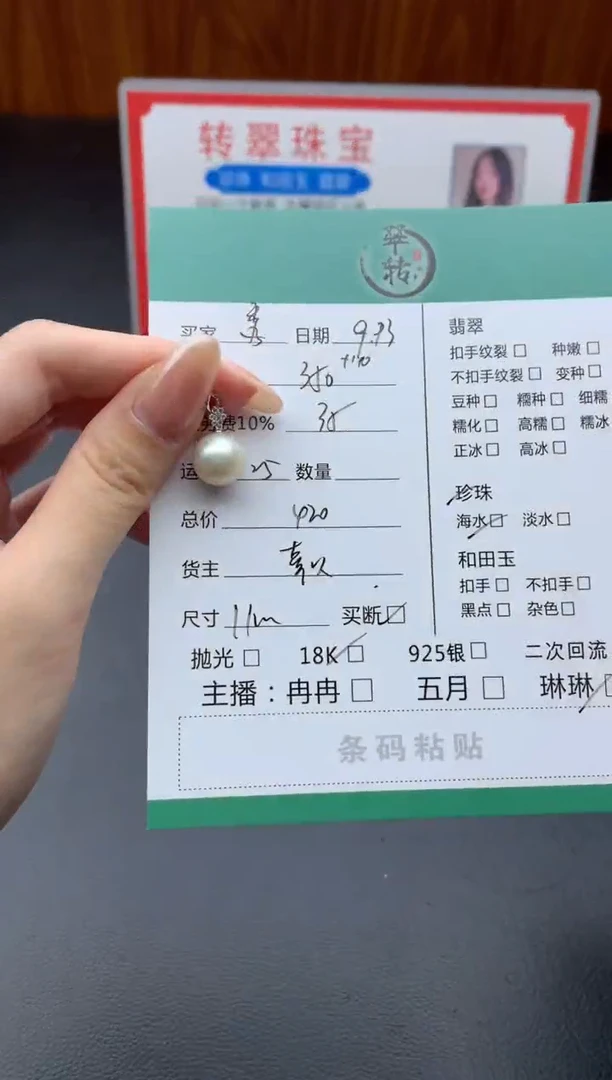 转翠珠宝
翠转
买家 日期 9.23
350
费10% 35
运 25 数量
总价 420
货主
尺寸 11m 买断☑
抛光□ 18K□ 925银□ 二次回流
主播：冉冉□ 五月□ 琳琳
条码粘贴
翡翠
扣手纹裂□ 种嫩□
不扣手纹裂□ 变种□
豆种□ 糯种□ 细糯
糯化□ 高糯□ 糯冰
正冰□ 高冰□
珍珠
海水☑ 淡水□
和田玉
扣手□ 不扣手□
黑点□ 杂色□